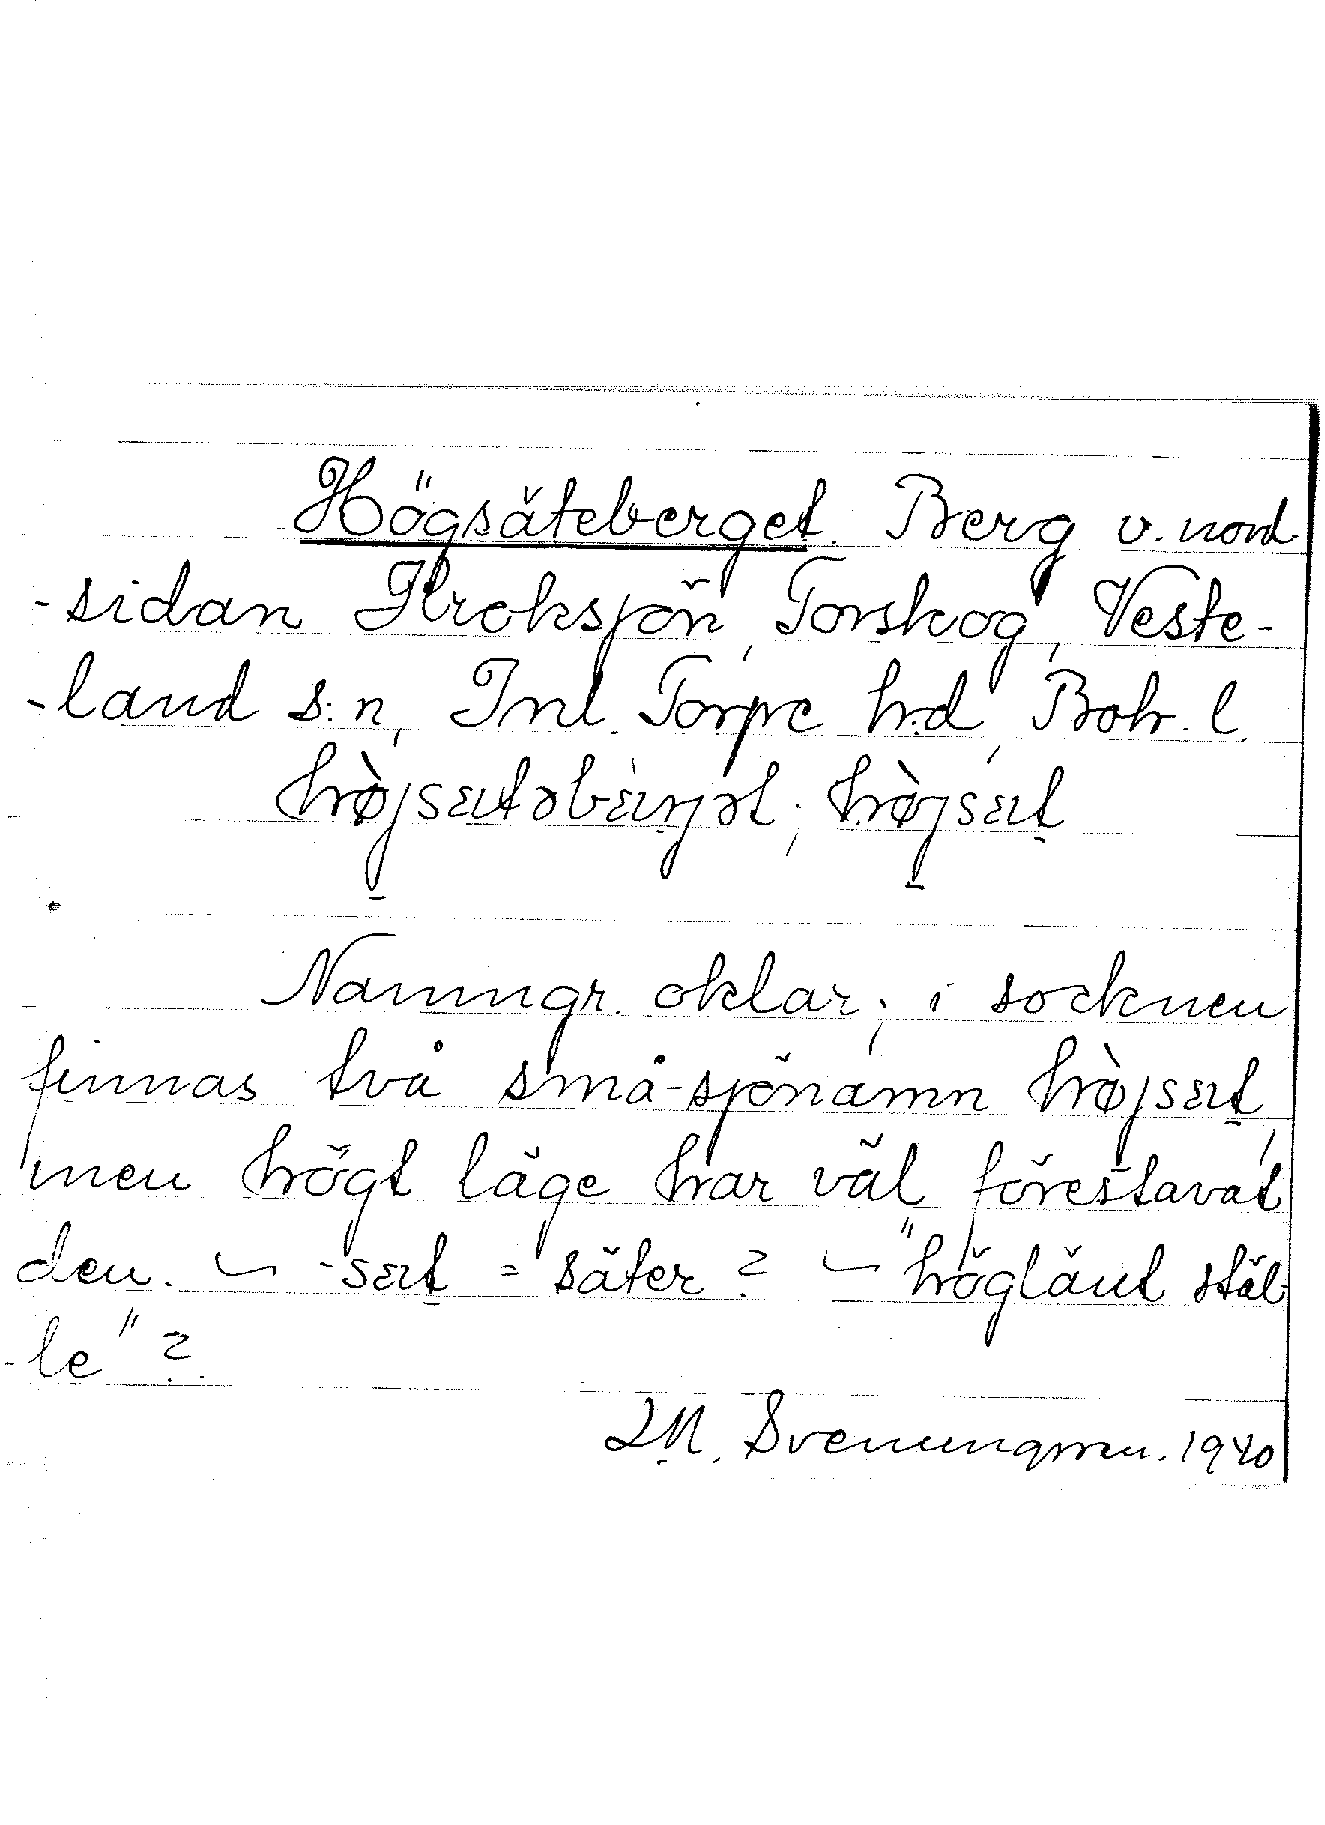 Högsäteberget. Berg v. nord-
-sidan Kroksjön, Torskog, Veste-
-land s:n, Inl. Torpe h:d, Boh. l.
hø̀jsɛtəbɛ̀rjət; hø̀jsɛt
Namngr. oklar; i socknen
finnas två små-sjönamn hø̀jsɛt,
men högt läge har väl förestavat
den. – -sɛt = säter? – "högläut stäl-
-le"?
Svenungsson. 1940